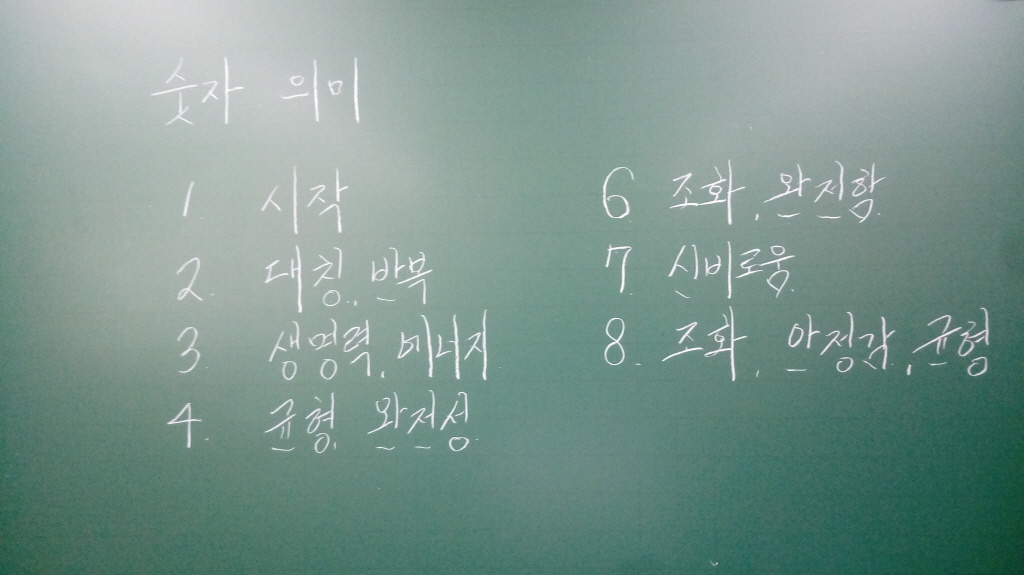 숫자 의미
1. 시작
2. 대칭, 반복
3. 생명력, 에너지
4. 균형, 완전성
6 조화, 완전함
7 신비로움
8. 조화, 안정감, 균형